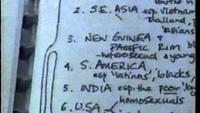 2. S.E. ASIA esp. Vietnam
Thailand,
3. NEW GUINEA &
PACIFIC RIM
- heterosexual & young
4. S. AMERICA
esp 'latinos', blacks,
5. INDIA esp. the poor low
homosexuals
6. U.S.A